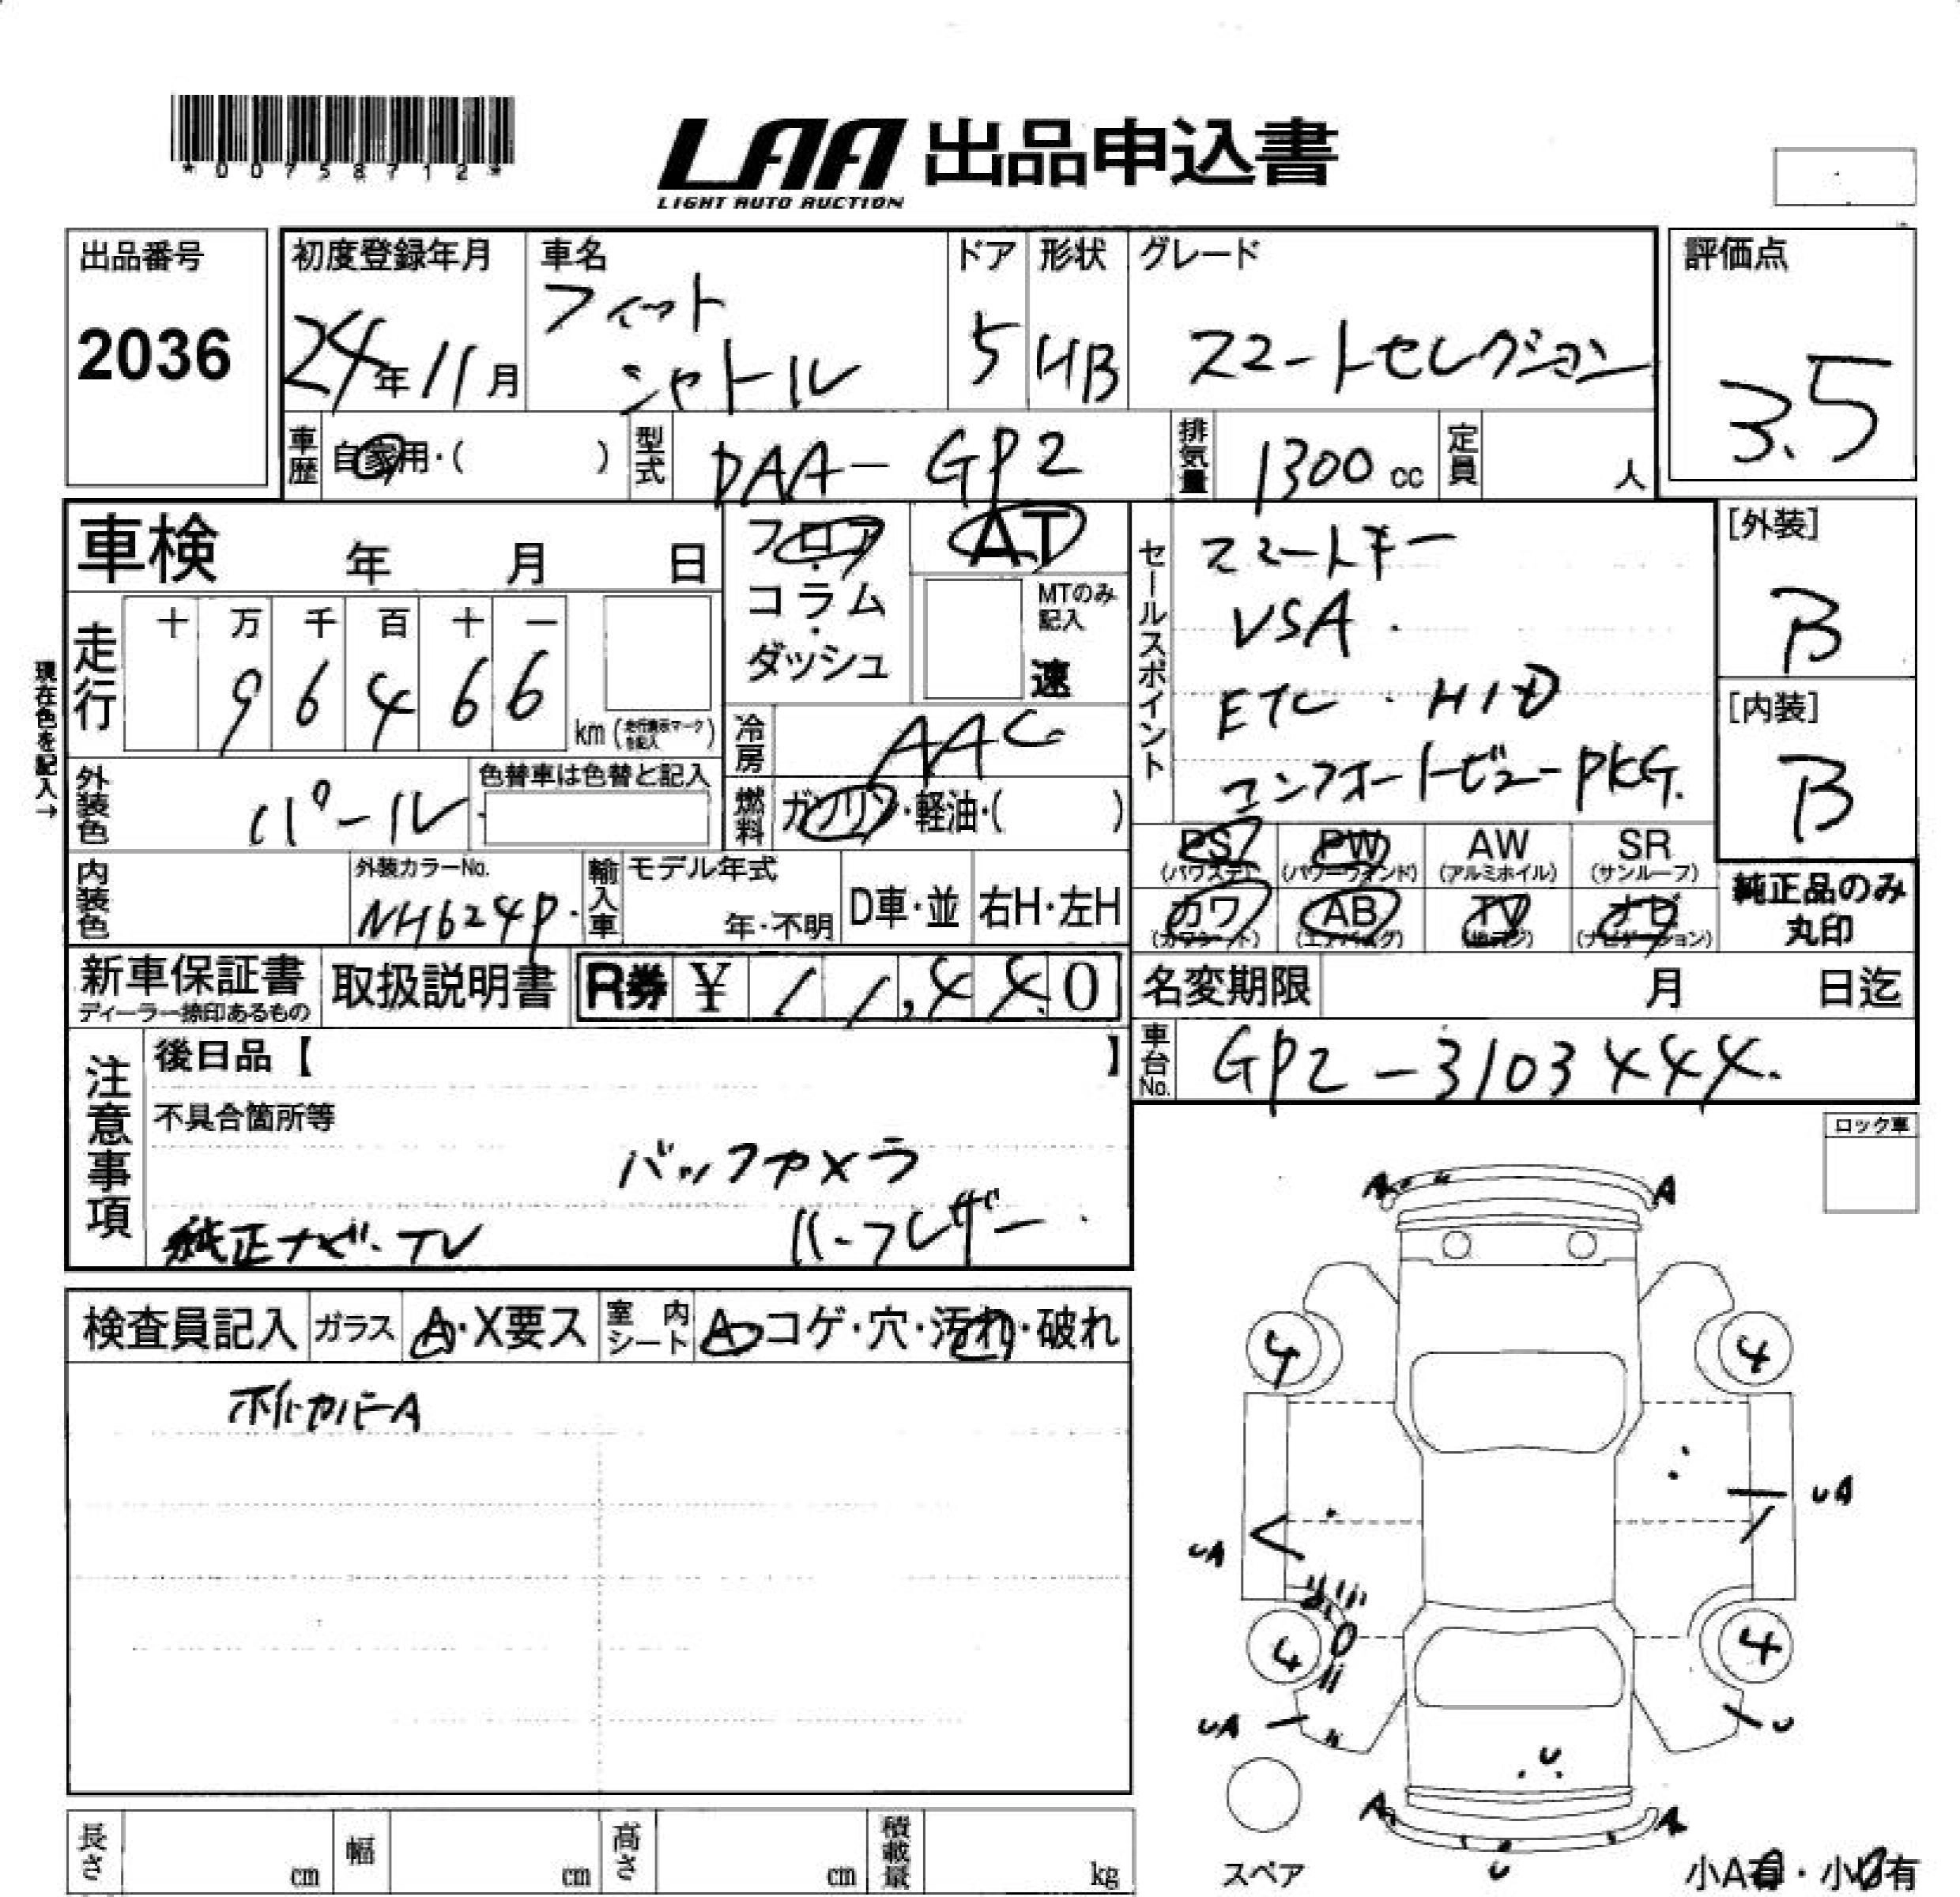 *00758712*
LAA 出品申込書
LIGHT AUTO AUCTION
出品番号
2036
初度登録年月
24年11月
車名
フィット
シャトル
ドア
5
形状
HB
グレード
スマートセレクション
評価点
3.5
車歴
自家用・( )
型式
DAA-GP2
排気量
1300cc
定員
人
車検 年 月 日
フロア
・
コラム
・
ダッシュ
AT
MTのみ
記入
速
セールスポイント
スマートキー
VSA.
ETC・HID
コンフォートビューPKG.
[外装]
B
[内装]
B
現在色を記入→
走行
十 万 千 百 十 一
9 6 4 6 6
km(走行表示マークを記入)
冷房
AAC
燃料
ガソリン・軽油・( )
外装色
パール
色替車は色替と記入
内装色
外装カラーNo.
NH624P.
輸入車
モデル年式
年・不明
D車・並
右H・左H
PS
(パワステ)
PW
(パワーウインド)
AW
(アルミホイル)
SR
(サンルーフ)
カワ
(カワシート)
AB
(エアバッグ)
TV
(地デジ)
ナビ
(ナビゲーション)
純正品のみ
丸印
新車保証書
ディーラー捺印あるもの
取扱説明書
R券 ¥ 11,440
名変期限 月 日迄
車台No.
GP2-3103444.
注意事項
後日品【 】
不具合箇所等
バックカメラ
純正ナビ・TV
ハーフレザー.
ロック車
検査員記入
ガラス
A・X要ス
室内シート
A・コゲ・穴・汚れ・破れ
ホイルカバーA
A A
4 4
UA
UA
4 4
UA U
U
A A
U
スペア
小A有・小U有
長さ cm
幅 cm
高さ cm
積載量 kg